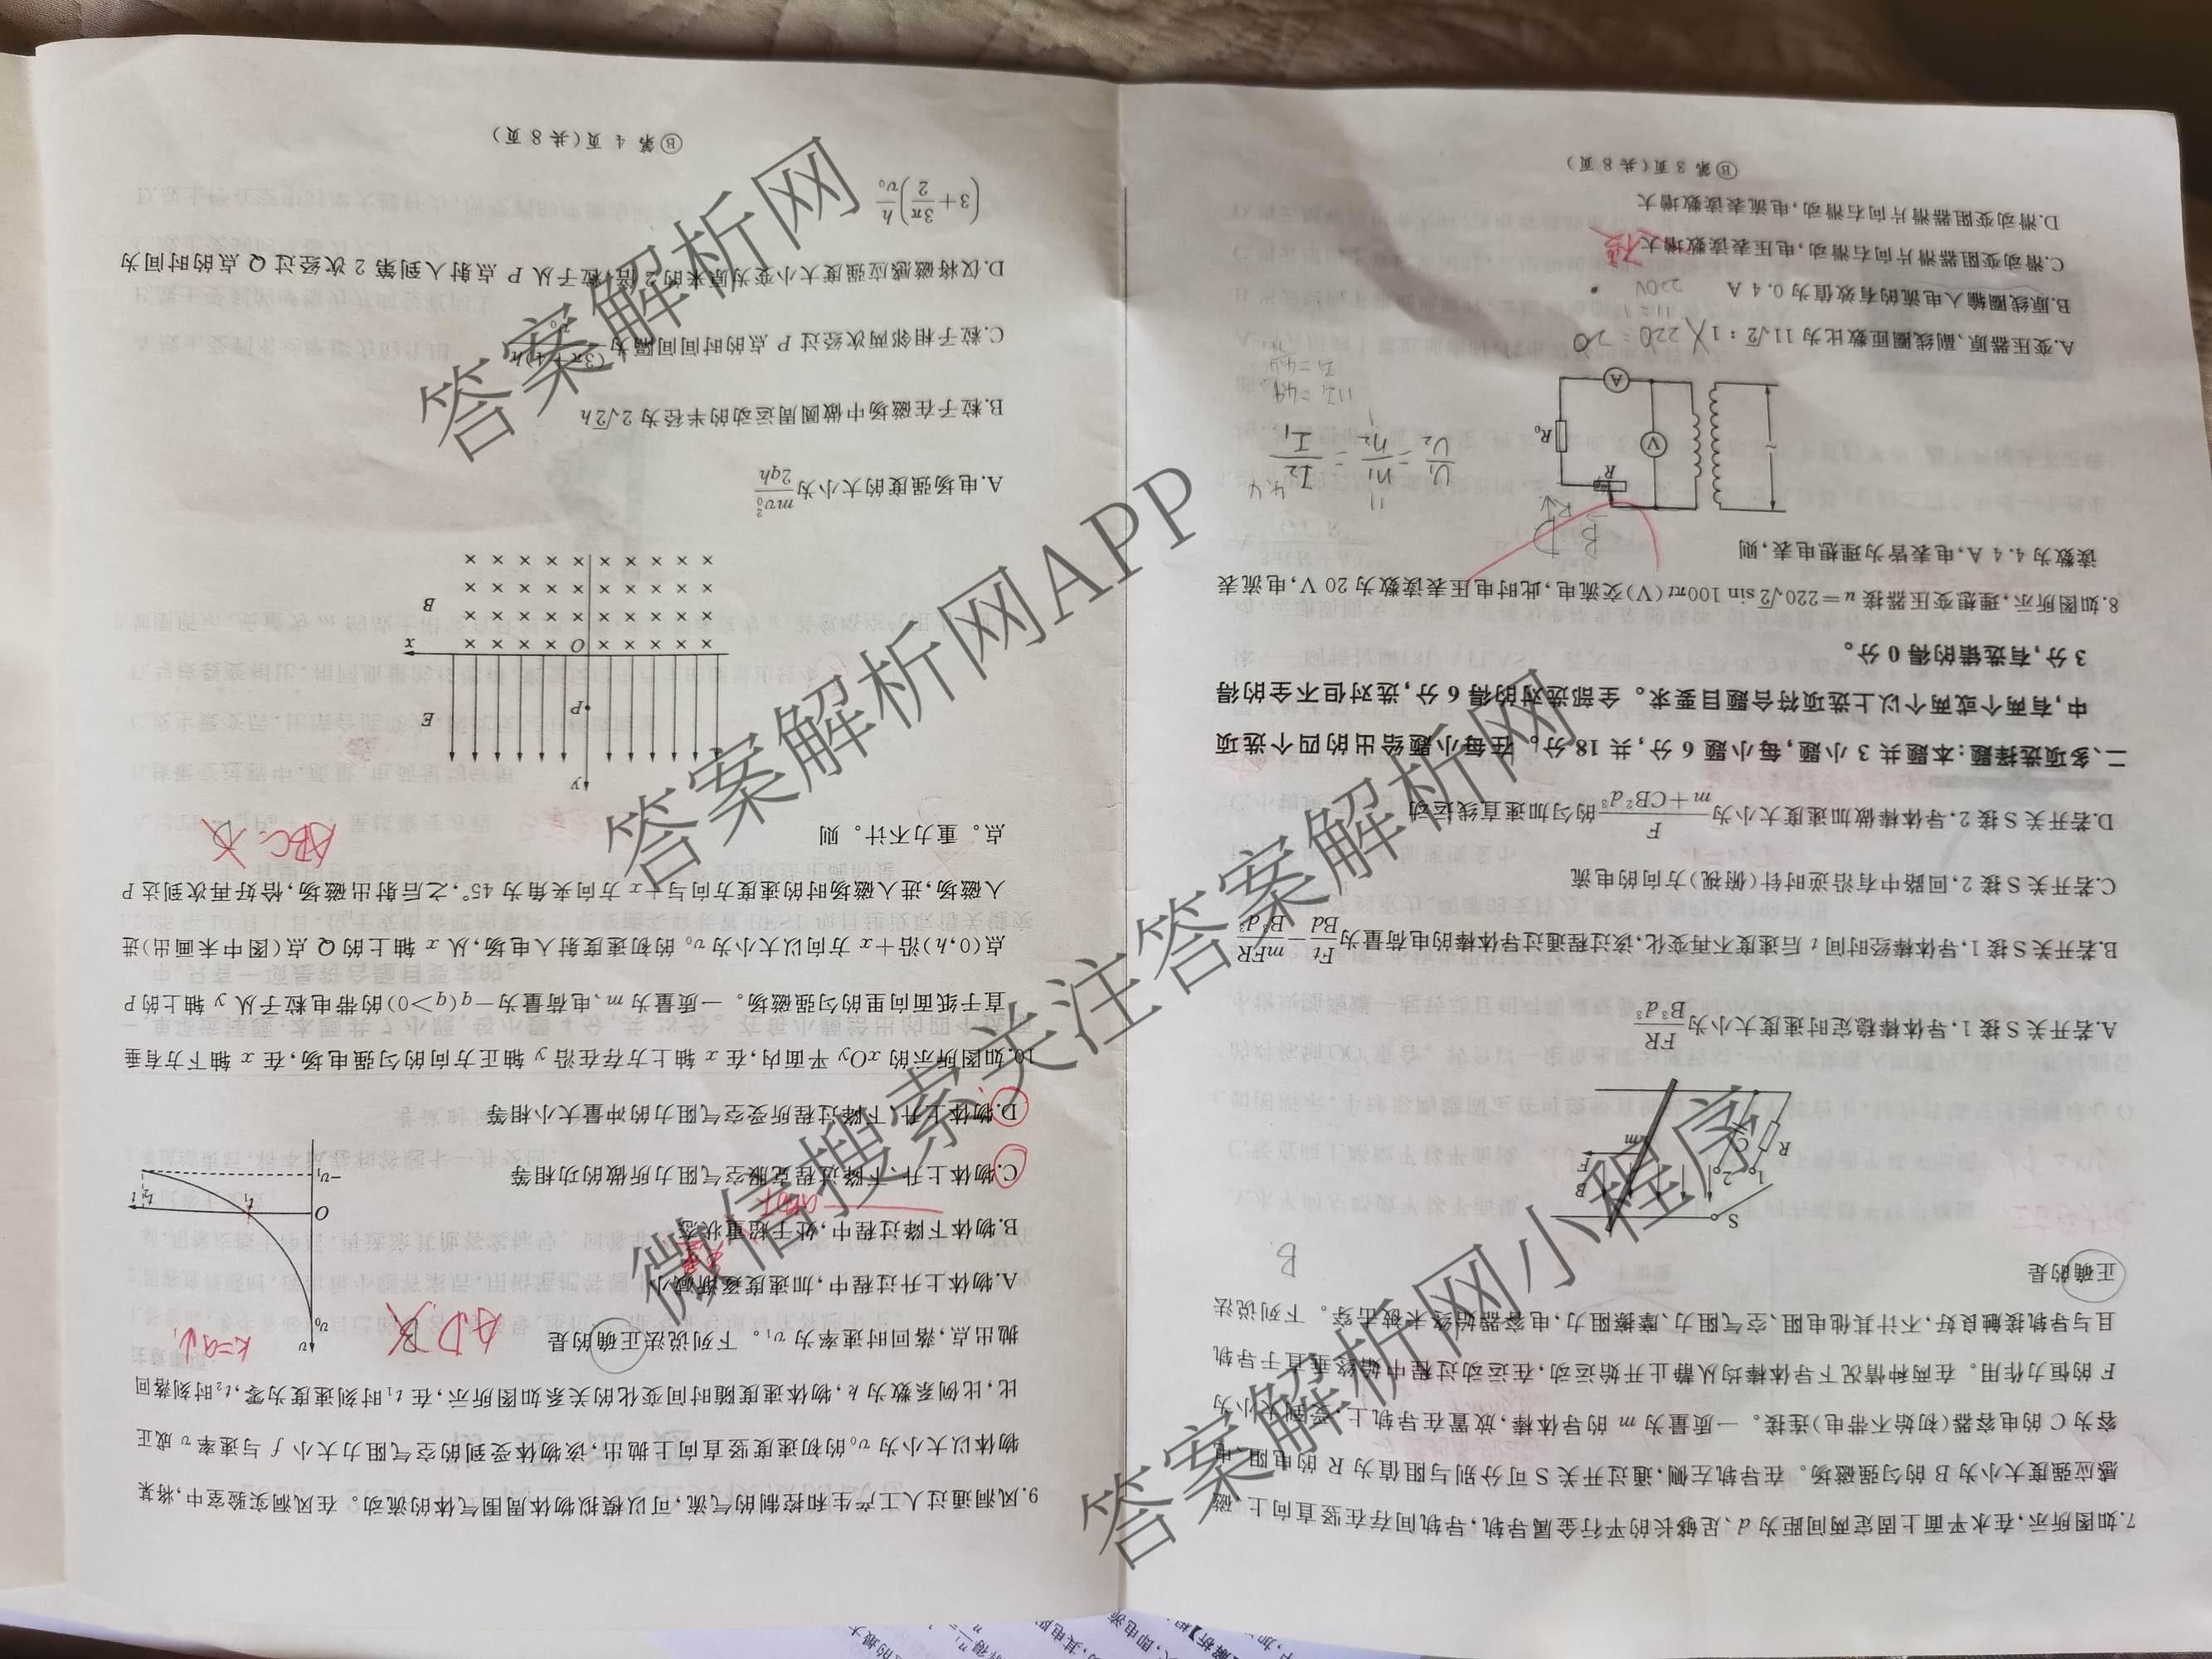 7.如图所示,在水平面上固定两间距为d、足够长的平行金属导轨,导轨间存在竖直向上、磁
感应强度大小为B的匀强磁场。在导轨左侧,通过开关S可分别与阻值为R的电阻、电
容为C的电容器(初始不带电)连接。一质量为m的导体棒,放置在导轨上,受到大小为
F的恒力作用。在两种情况下导体棒均从静止开始运动,在运动过程中始终垂直于导轨
且与导轨接触良好,不计其他电阻、空气阻力、摩擦阻力,电容器始终未被击穿。下列说法
正确的是
B
S
1
2
R
C
m
B
F
A.若开关S接1,导体棒稳定时速度大小为FR/B³d³
B.若开关S接1,导体棒经时间t后速度不再变化,该过程通过导体棒的电荷量为Ft/Bd−mFR/B³d³
C.若开关S接2,回路中有沿逆时针(俯视)方向的电流
D.若开关S接2,导体棒做加速度大小为F/(m+CB²d³)的匀加速直线运动
二、多项选择题:本题共3小题,每小题6分,共18分。在每小题给出的四个选项
中,有两个或两个以上选项符合题目要求。全部选对的得6分,选对但不全的得
3分,有选错的得0分。
8.如图所示,理想变压器接u=220√2sin 100πt(V)交流电,此时电压表读数为20 V,电流表
读数为4.4 A,电表皆为理想电表,则
B D
~
V
A
R
R₀
U₁/U₂=n₁/n₂=I₂/I₁
11
1
4.4
11I₁=4.4
A.变压器原、副线圈匝数比为11√2:1
220=20
B.原线圈输入电流的有效值为0.4 A
220V
C.滑动变阻器滑片向右滑动,电压表读数增大
不变
D.滑动变阻器滑片向右滑动,电流表读数增大
Ⓑ第3页(共8页)
9.风洞通过人工产生和控制的气流,可以模拟物体周围气体的流动。在风洞实验室中,将某
物体以大小为v₀的初速度竖直向上抛出,该物体受到的空气阻力大小f与速率v成正
比,比例系数为k,物体速度随时间变化的关系如图所示,在t₁时刻速度为零,t₂时刻落回
抛出点,落回时速率为v₁。下列说法正确的是
AD
A.物体上升过程中,加速度逐渐减小
B.物体下降过程中,处于超重状态
失重
C.物体上升、下降过程克服空气阻力所做的功相等
D.物体上升、下降过程所受空气阻力的冲量大小相等
v
v₀
O
t₁
t₂
t
−v₁
10.如图所示的xOy平面内,在x轴上方存在沿y轴正方向的匀强电场,在x轴下方有垂
直于纸面向里的匀强磁场。一质量为m、电荷量为−q(q>0)的带电粒子从y轴上的P
点(0,h)沿+x方向以大小为v₀的初速度射入电场,从x轴上的Q点(图中未画出)进
入磁场,进入磁场时的速度方向与+x方向夹角为45°,之后射出磁场,恰好再次到达P
点。重力不计。则
ABC
y
E
P
O
x
B
A.电场强度的大小为mv₀²/2qh
B.粒子在磁场中做圆周运动的半径为2√2h
C.粒子相邻两次经过P点的时间间隔为(3π+4)h/v₀
D.仅将磁感应强度大小变为原来的2倍,粒子从P点射入到第2次经过Q点的时间为
(3+3π/2)h/v₀
Ⓑ第4页(共8页)
答案解析网
微信搜索关注答案解析网
答案解析网APP
答案解析网小程序